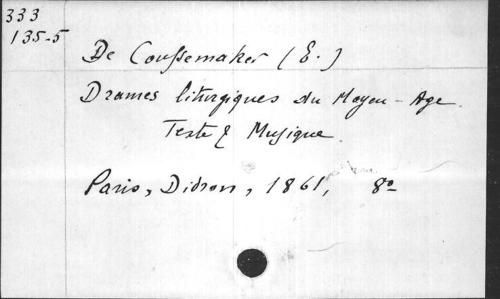 333
135-5
De Coussemaker (E.)
Drames liturgiques du Moyen-Age.
Texte & Musique.
Paris, Didron, 1861, 8º